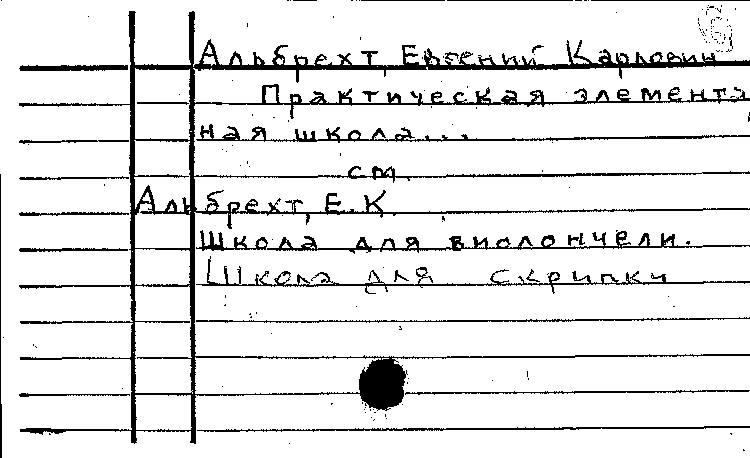 Альбрехт, Евгений Карлович
Практическая элемента
ная школа...
см.
Альбрехт, Е.К.
Школа для виолончели.
Школа для скрипки